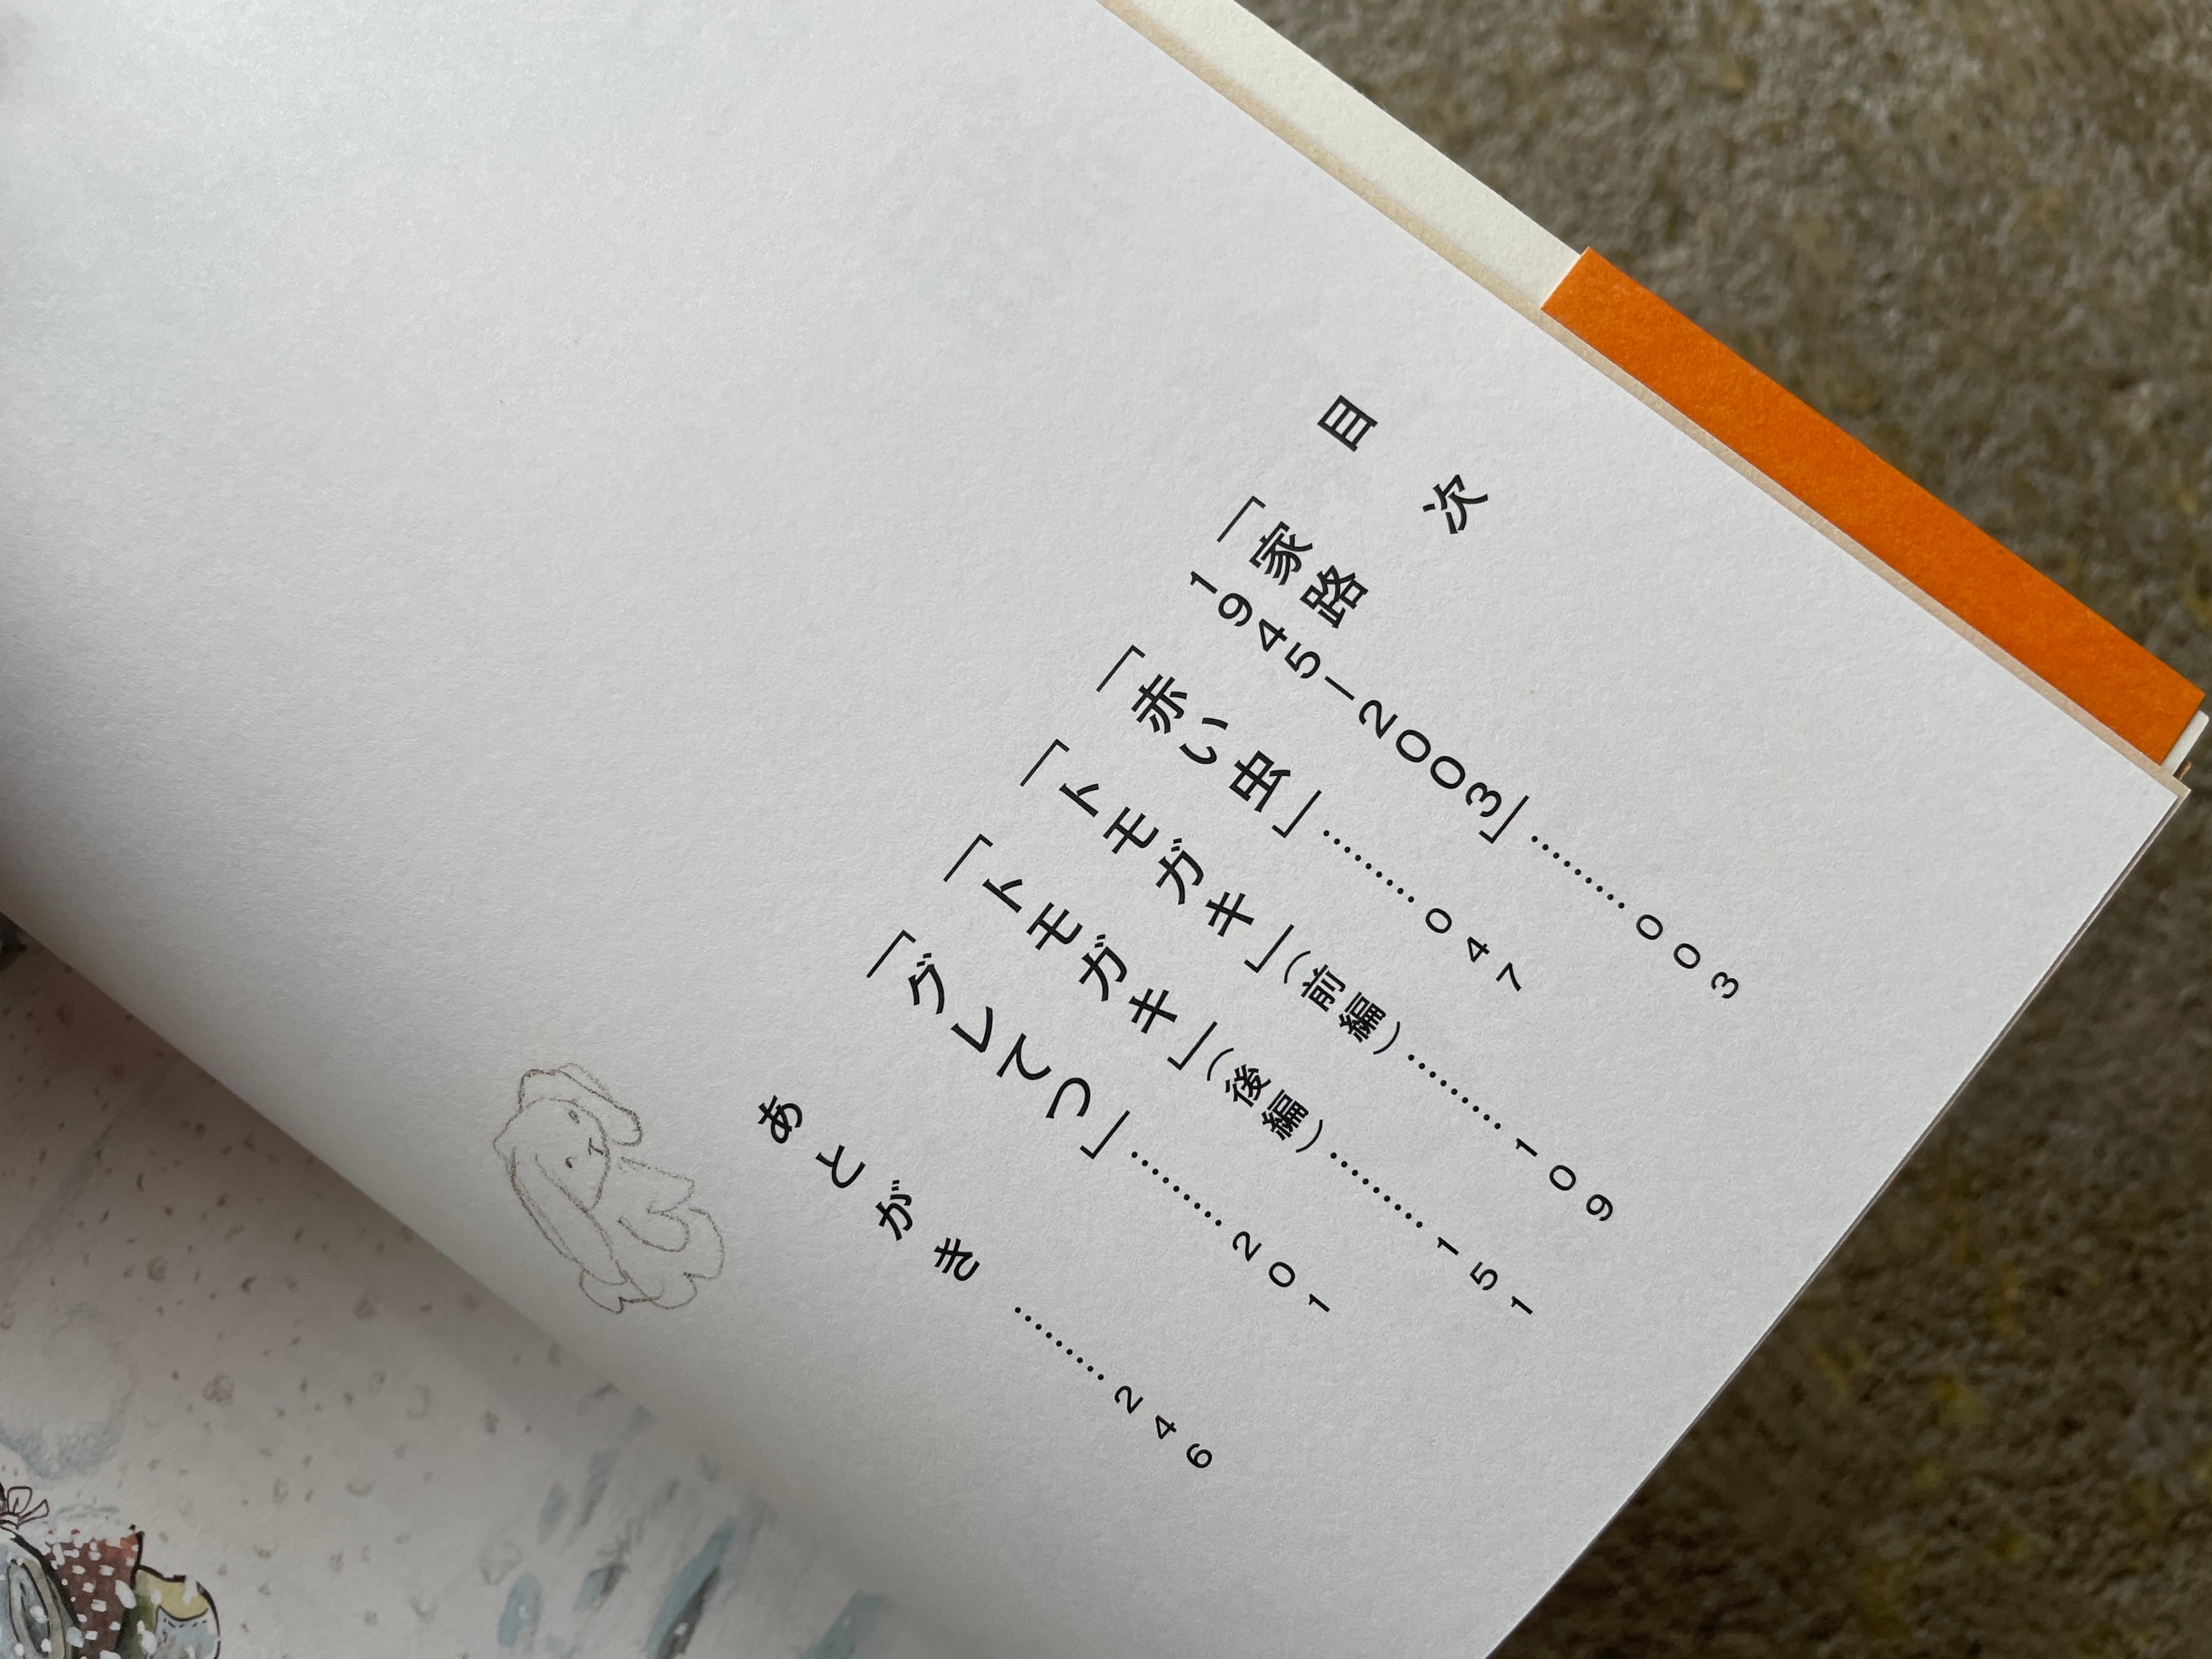 目次
「家路
1945−2003」………003
「赤い虫」………047
「トモガキ」(前編)………109
「トモガキ」(後編)………151
「グレてつ」………201
あとがき………246